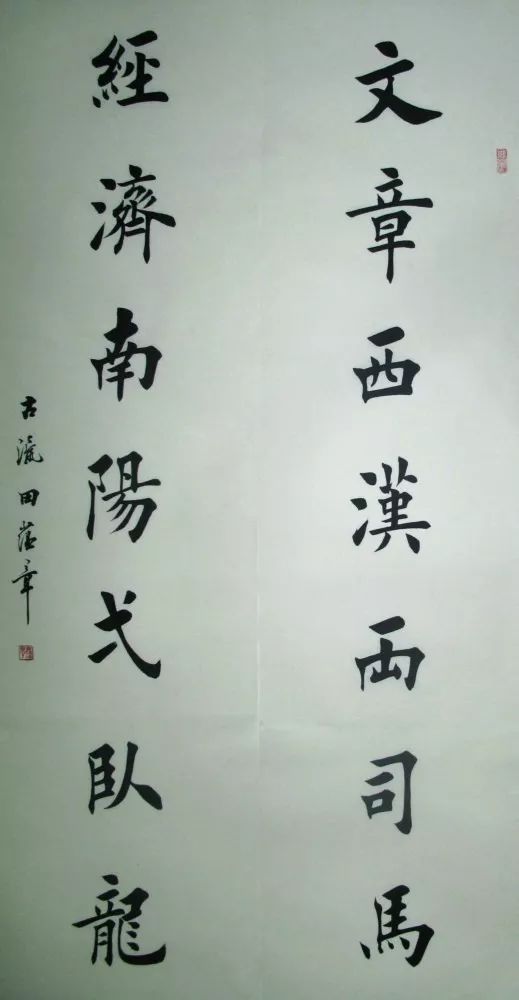 文章西漢両司馬
經濟南陽弌臥龍
古瀛田蘊章